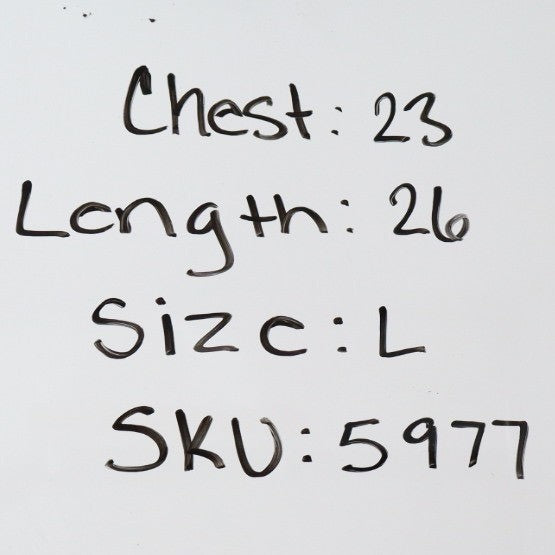 Chest: 23
Length: 26
Size: L
SKU: 5977